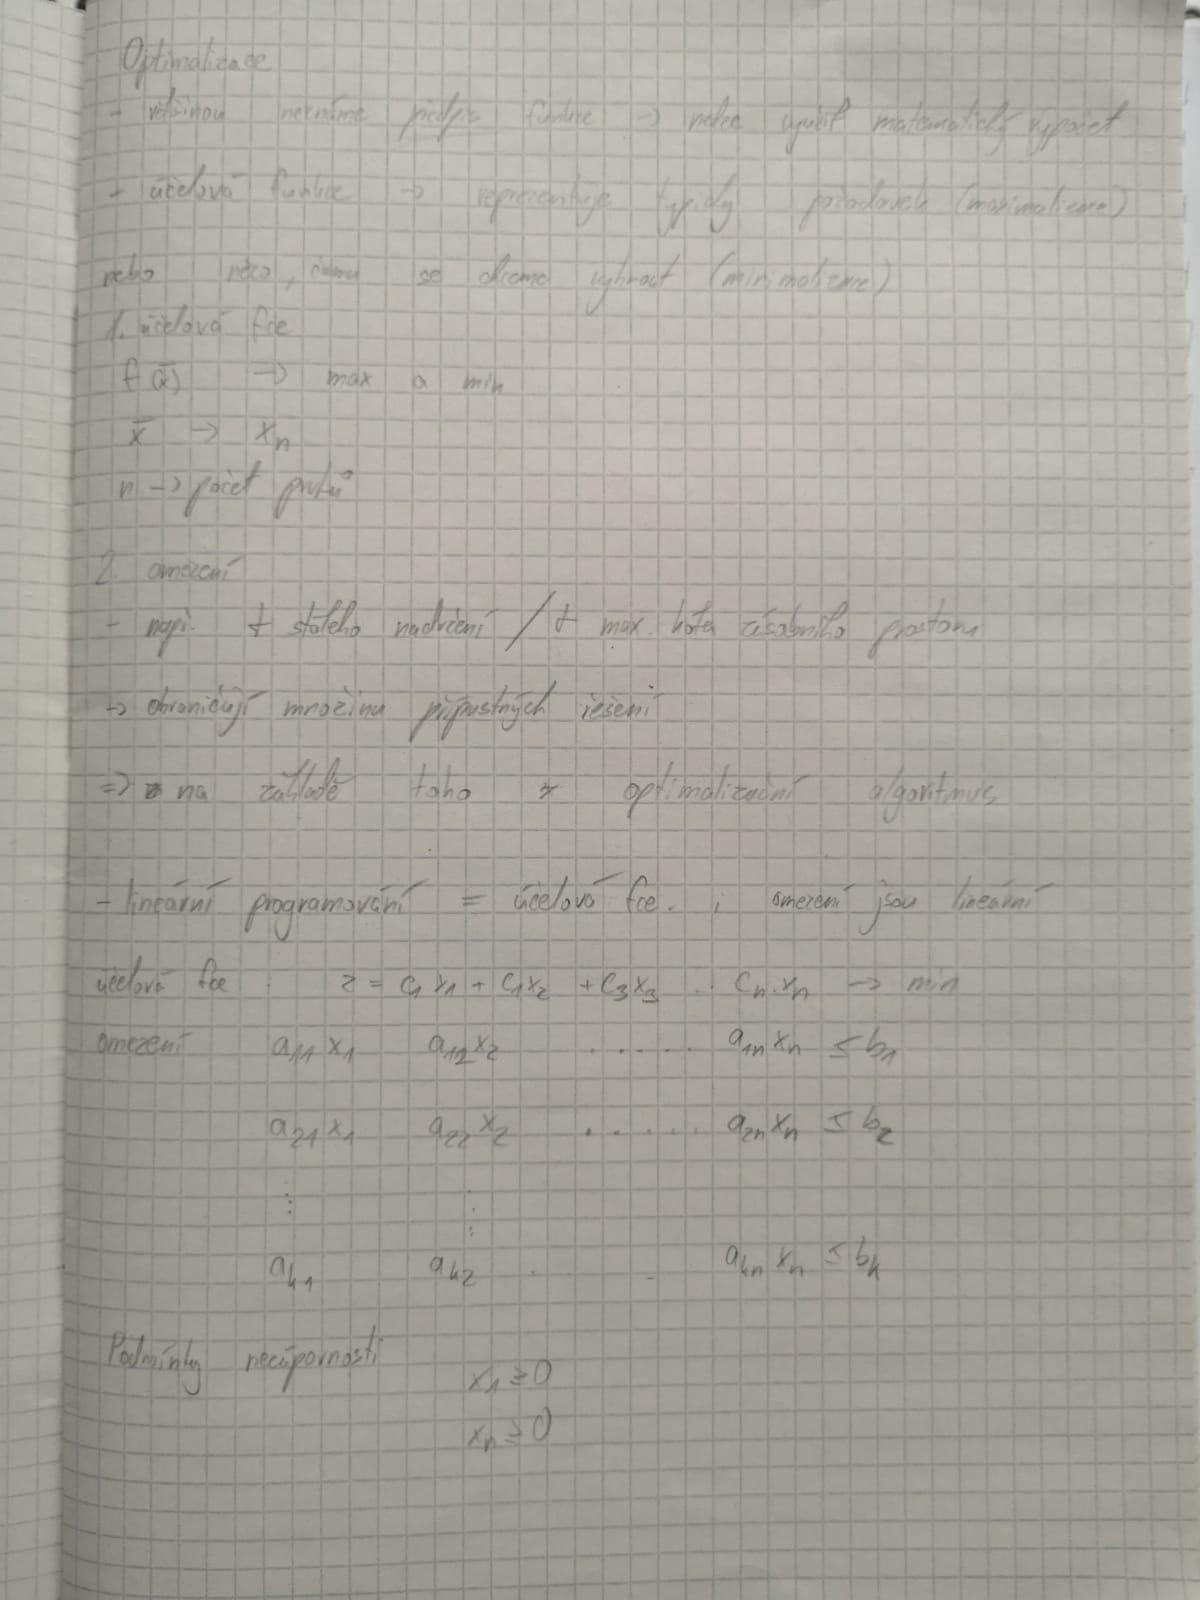 Optimalizace
- většinou neznáme předpis funkce -> nelze využít matematický výpočet
- účelová funkce -> reprezentuje typicky požadavek (maximalizace)
nebo něco, čemu se chceme vyhnout (minimalizace)
1. účelová fce
f(x̄) -> max a min
x̄ -> xn
n -> počet prvků
2. omezení
- např. t stálého nadržení / t max. kóta zásobního prostoru
-> ohraničují množinu přípustných řešení
=> na základě toho optimalizační algoritmus
- lineární programování = účelová fce. i omezení jsou lineární
účelová fce z = c1 x1 + c1 x2 + c3 x3 .. cn.xn -> min
omezení a11 x1 a12 x2 ..... a1n xn ≤ b1
a21 x1 a22 x2 ..... a2n xn ≤ b2
ak1 ak2 . . akn xn ≤ bk
Podmínky nezápornosti
x1 ≥ 0
xn ≥ 0